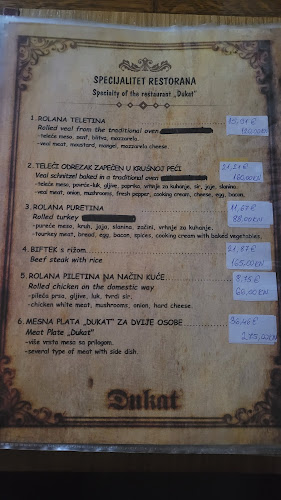 SPECIJALITET RESTORANA
Specialty of the restaurant „Dukat"
1. ROLANA TELETINA
Rolled veal from the traditional oven
-teleće meso, senf, blitva, mozzarela.
-veal meat, mustard, mangel, mozzarela cheese.
2. TELEĆI ODREZAK ZAPEČEN U KRUŠNOJ PEĆI
Veal schnitzel baked in a traditional oven
-teleće meso, povrće-luk, gljive, paprika, vrhnje za kuhanje, sir, jaja, slanina.
-veal meat, onion, mushrooms, fresh pepper, cooking cream, cheese, egg, bacon.
160,00KN
3. ROLANA PURETINA
Rolled turkey
-pureće meso, kruh, jaja, slanina, začini, vrhnje za kuhanje.
-tourkey meat, bread, egg, bacon, spices, cooking cream with baked vegetables.
11,67€
88,00KN
4. BIFTEK s rižom
Beef steak with rice
165,00KN
5. ROLANA PILETINA NA NAČIN KUĆE
Rolled chicken on the domestic way
-pileća prsa, gljive, luk, tvrdi sir.
-chicken white meat, mushrooms, onion, hard cheese.
6. MESNA PLATA „DUKAT" ZA DVIJE OSOBE
Meat Plate „Dukat"
-više vrsta mesa sa prilogom.
-several type of meat with side dish.
Dukat